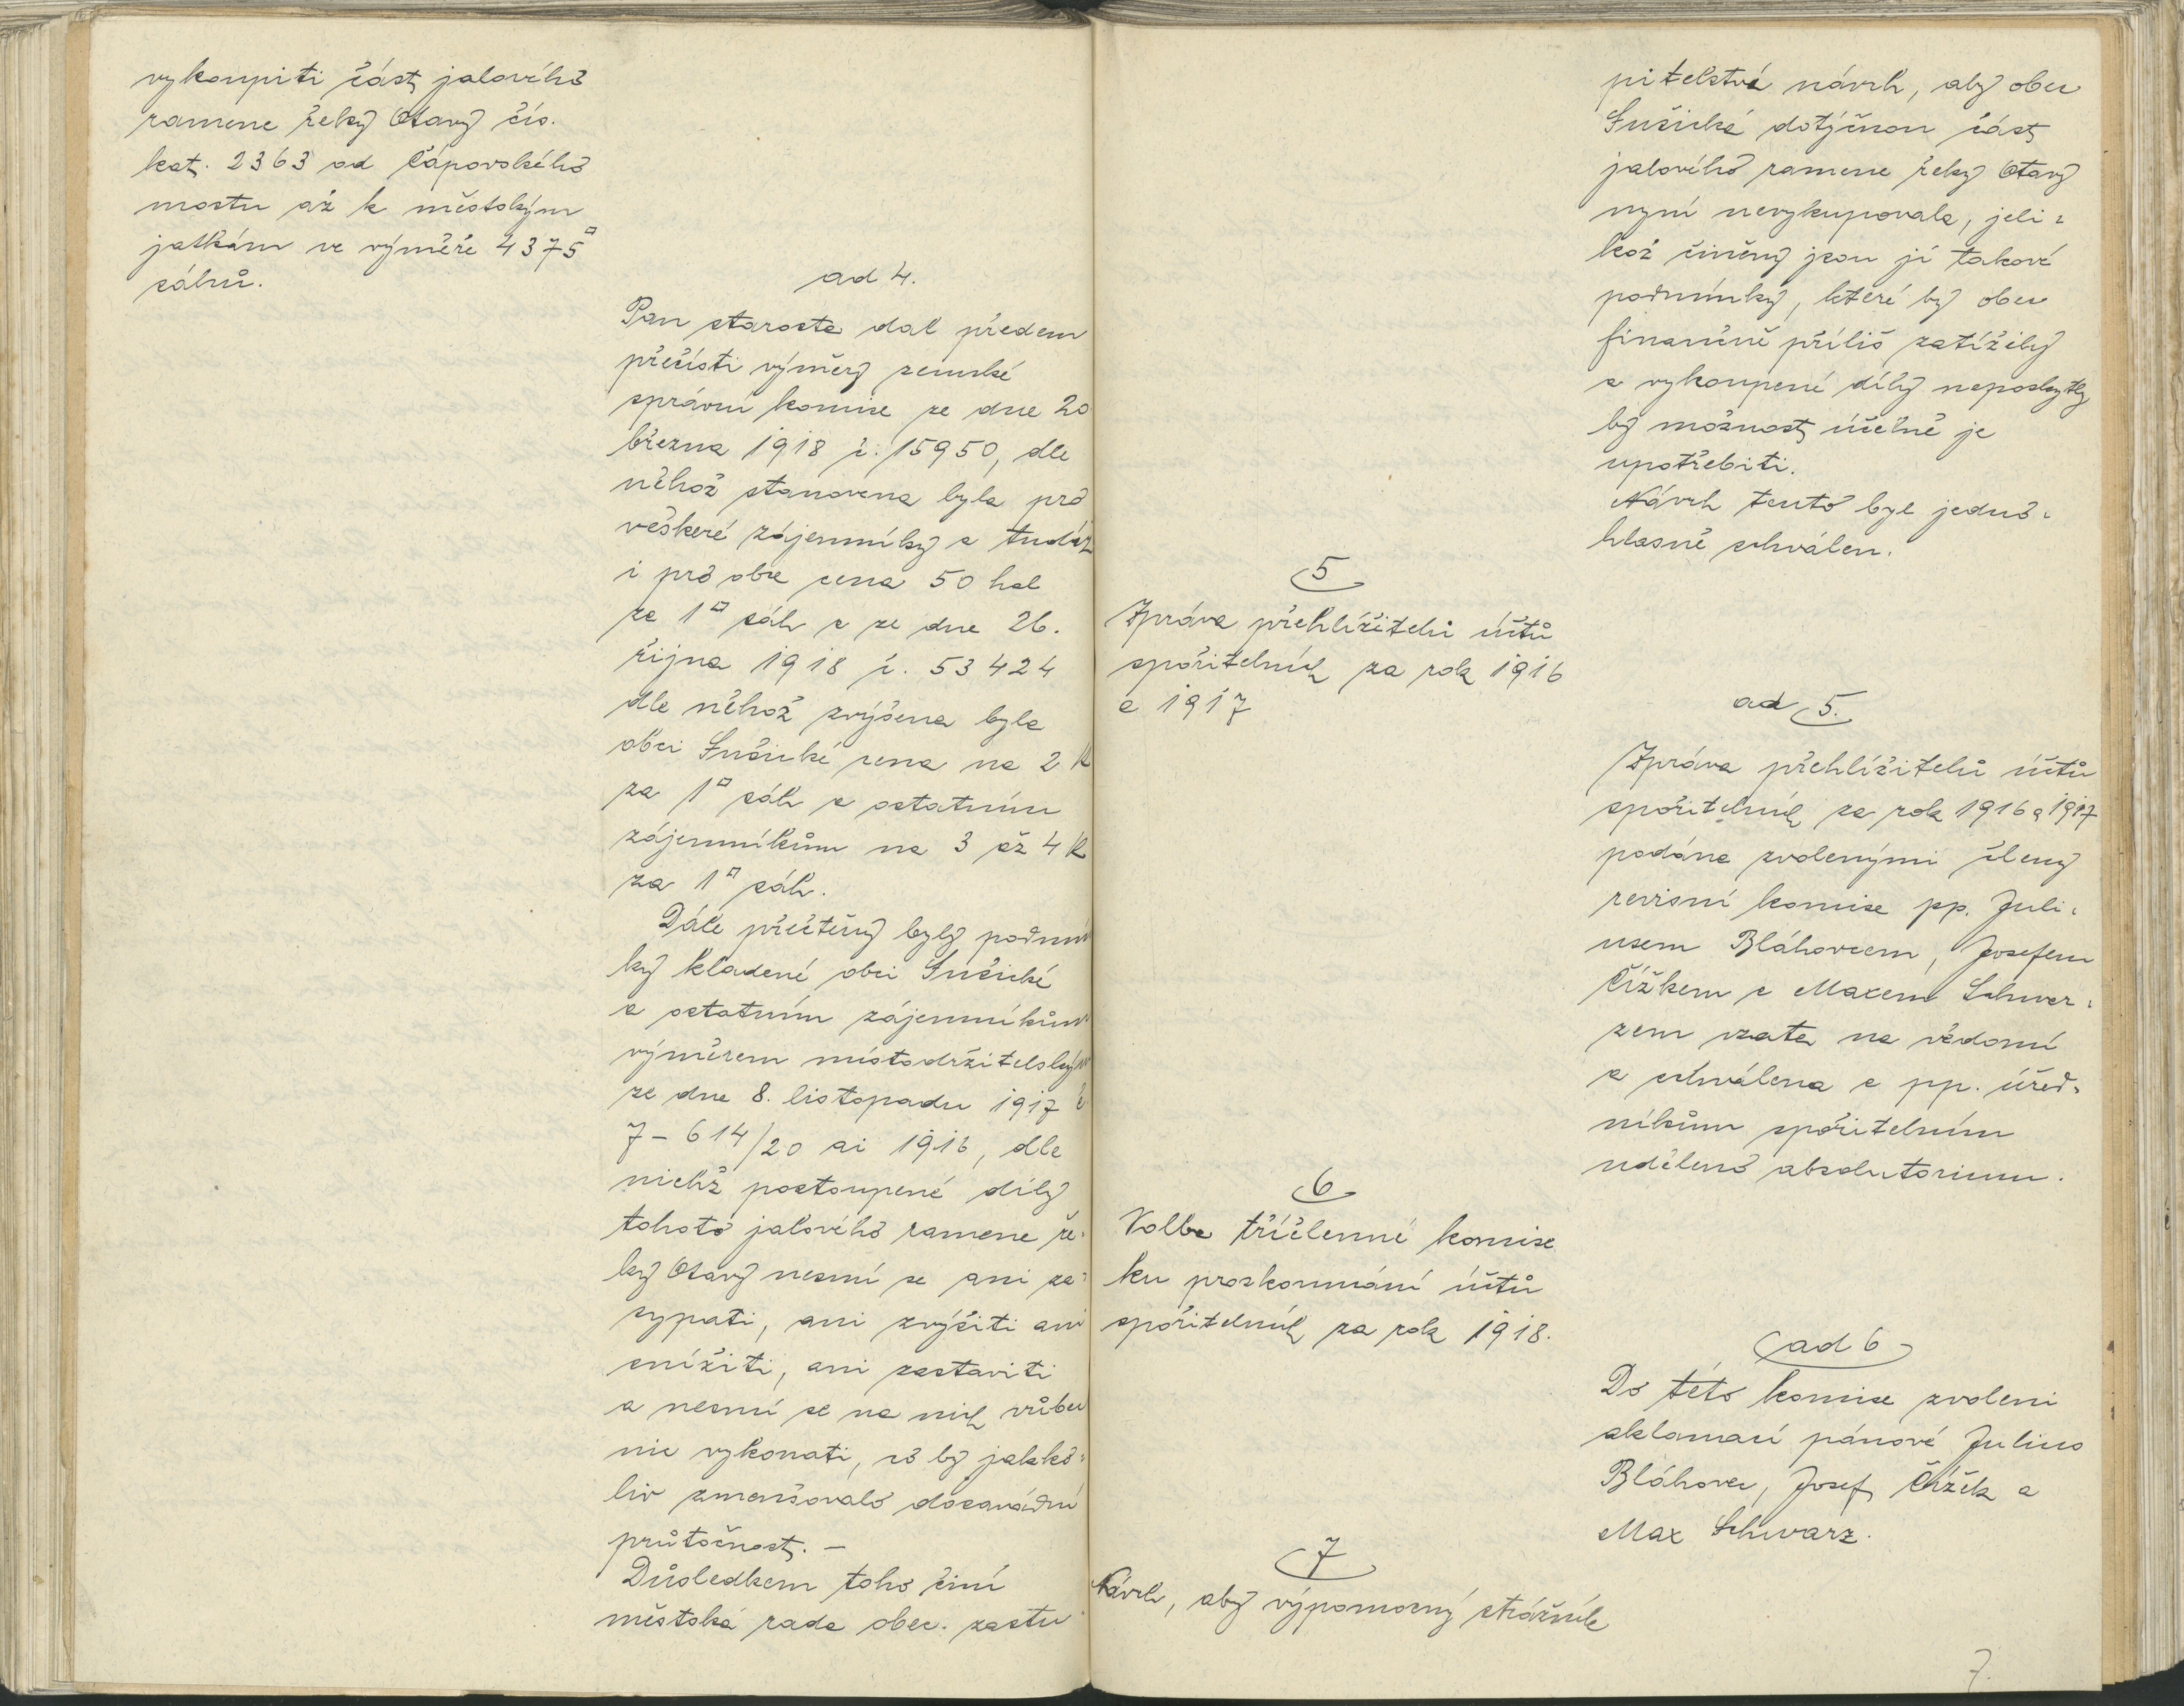 vykoupiti část jalového
ramene řeky Otavy čís.
kat. 2363 od Čápovského
mostu až k městským
jatkám ve výměře 4375□
sáhů.
ad 4.
Pan starosta dal předem
přečísti výměry zemské
správní komise ze dne 20
března 1918 č. 15950, dle
něhož stanovena byla pro
veškeré zájemníky a tudíž
i pro obec cena 50 hal
za 1□ sáh a ze dne 26.
října 1918 č. 53424
dle něhož zvýšena byla
obci Sušické cena na 2 K
za 1□ sáh a ostatním
zájemníkům na 3 až 4 K
za 1□ sáh.
Dále přečteny byly podmín
ky kladené obci Sušické
a ostatním zájemníkům
výměrem místodržitelským
ze dne 8. listopadu 1917 č
7-614/20 ai 1916, dle
nichž postoupené díly
tohoto jalového ramene ře-
ky Otavy nesmí se ani za-
sypati, ani zvýšiti ani
snížiti, ani zastaviti
a nesmí se na nich vůbec
nic vykonati, co by jakko-
liv zmenšovalo dosavádní
průtočnost. —
Důsledkem toho činí
městská rada obec. zastu
pitelstvá návrh, aby obec
Sušická dotýčnou část
jalového ramene řeky Otavy
nyní nevykupovala, jeli-
kož činěny jsou jí takové
podmínky, které by obec
finančně příliš zatížily
a vykoupené díly neposkytly
by možnost účelně je
upotřebiti.
Návrh tento byl jedno-
hlasně schválen.
5
Zpráva přehlížitelů účtů
spořitelních za rok 1916
a 1917
ad 5.
Zpráva přehlížitelů účtů
spořitelních za rok 1916 a 1917
podána zvolenými členy
revisní komise pp. Juli-
usem Bláhovcem, Josefem
Čížkem a Maxem Schwar-
zem vzata na vědomí
a schválena a pp. úřed-
níkům spořitelním
uděleno absolutorium.
6
Volba tříčlenné komise
ku proskoumání účtů
spořitelních za rok 1918.
ad 6
Do této komise zvoleni
aklamací pánové Julius
Bláhovec, Josef Čížek a
Max Schwarz.
7
Návrh, aby výpomocný strážník
7.